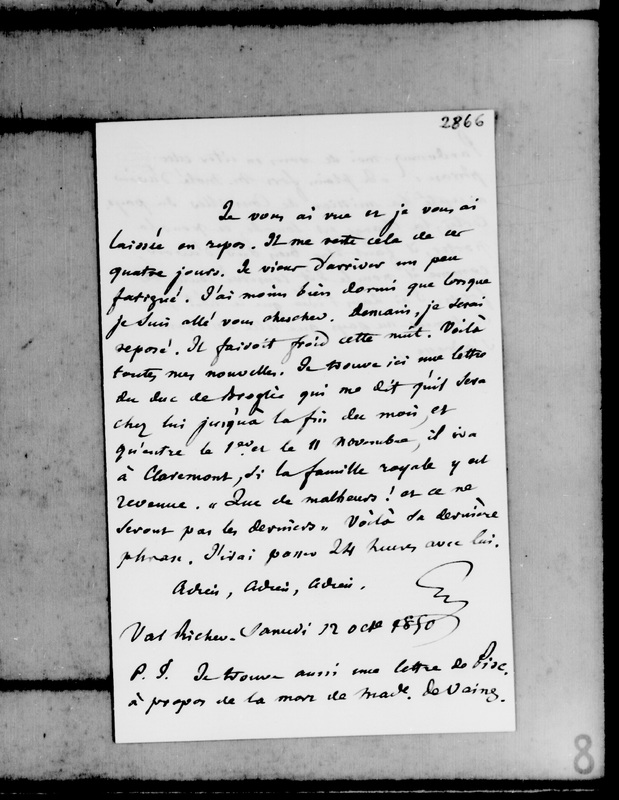 2866
Je vous ai vue et je vous ai
laissée en repos. Il me reste cela de ces
quatre jours. Je viens d'arriver un peu
fatigué. J'ai moins bien dormi que lorsque
je suis allé vous chercher. Demain, je serai
reposé. Il faisoit froid cette nuit. Voilà
toutes mes nouvelles. Je trouve ici une lettre
du duc de Broglie qui me dit qu'il sera
chez lui jusqu'à la fin du mois, et
qu'entre le 1er et le 11 novembre, il ira
à Claremont, si la famille royale y est
revenue. "Que de malheurs ! et ce ne
seront pas les derniers" Voilà sa dernière
phrase. J'irai passer 24 heures avec lui.
Adieu, adieu, adieu.
Val Richer. Samedi 12 octe 1850
P. S. Je trouve aussi une lettre de Pisc.
à propos de la mort de Made. de Vaines.
8